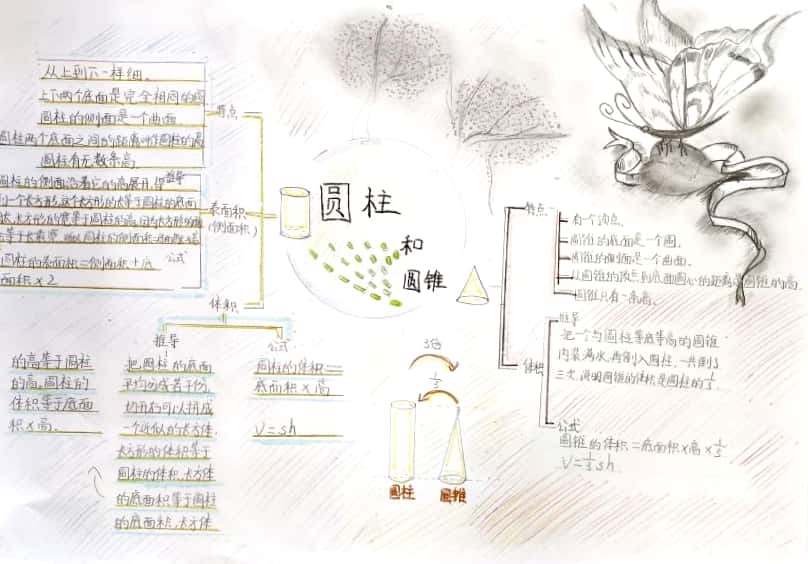 从上到下一样细。
上下两个底面是完全相同的圆
圆柱的侧面是一个曲面
圆柱两个底面之间的距离叫作圆柱的高
圆柱有无数条高
特点
推导
圆柱的侧面沿着它的高展开,得
到一个长方形,这个长方形的长等于圆柱的底面
长方形的宽等于圆柱的高
公式
圆柱的表面积=侧面积+底
面积×2
表面积
(侧面积)
体积
推导
把圆柱的底面
平均分成若干份,
切开后可以拼成
一个近似的长方体,
长方形的体积等于
圆柱的体积,长方体
的底面积等于圆柱
的底面积,长方体
的高等于圆柱
的高,圆柱的
体积等于底面
积×高。
公式
圆柱的体积=
底面积×高
V=sh
圆柱
和
圆锥
3倍
1/3
圆柱
圆锥
特点
有一个顶点。
圆锥的底面是一个圆。
圆锥的侧面是一个曲面。
从圆锥的顶点到底面圆心的距离是圆锥的高。
圆锥只有一条高。
体积
推导
把一个与圆柱等底等高的圆锥
内装满水,再倒入圆柱,一共倒了
三次,说明圆锥的体积是圆柱的1/3。
公式
圆锥的体积=底面积×高×1/3。
V=1/3sh.